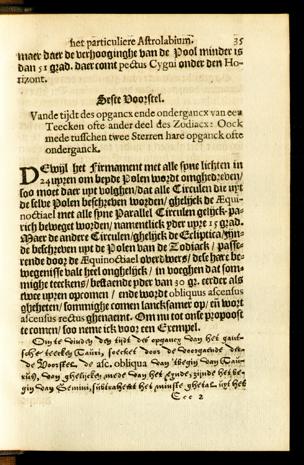 het particuliere Astrolabium. 35
maer daer de verhooginghe van de Pool minder is
dan 51 grad. daer comt pectus Cygni onder den Ho-
rizont.
Seste Voorstel.
Vande tijdt des opgancx ende ondergancx van een
Teecken ofte ander deel des Zodiacx: Oock
mede tusschen twee Sterren hare opganck ofte
onderganck.
DEwijl het Firmament met alle syne lichten in
24 uyren om beyde Polen wordt omghedreven/
soo moet daer uyt volghen/dat alle Circulen die uyt
de selve Polen beschreven worden/ ghelijck de Æqui-
noctiael met alle syne Parallel Circulen gelijck-pa-
rich beweget worden/ namentlick yder uyre 15 grad.
Maer de andere Circulen/ghelijck de Ecliptica/zijn-
de beschreven uyt de Polen van de Zodiack / passe-
rende voor de Æquinoctiael overdwers/ dese hare be-
wegenisse valt heel onghelijck / in voeghen dat som-
mighe teeckens/ bestaende yder van 30 gz. eerder als
twee uyren opcomen / ende wordt obliquus ascensus
gheheten/sommighe comen lancksamer op/ en wort
ascensus rectus ghenaemt. Om nu tot ons propoost
te comen/ soo neme ick voor een Exempel.
Om te vinden den tijdt des opgancx van het gant-
sche teecken Tauri, soecket door de voorgaende
de Voorstel, de asc. obliqua van 't begin van Tau-
rus, van ghelijcken mede van het eynde, zijnde het be-
gin van Gemini, subtraheert het minste ghetal uyt het
Ccc 2